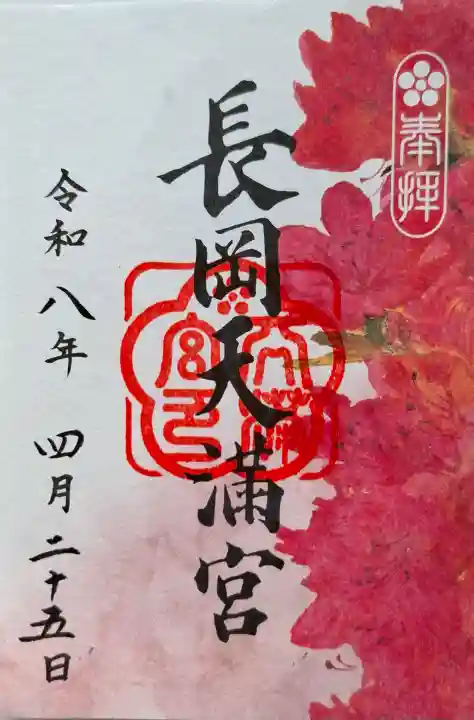 奉拝
長岡天満宮
令和八年 四月二十五日